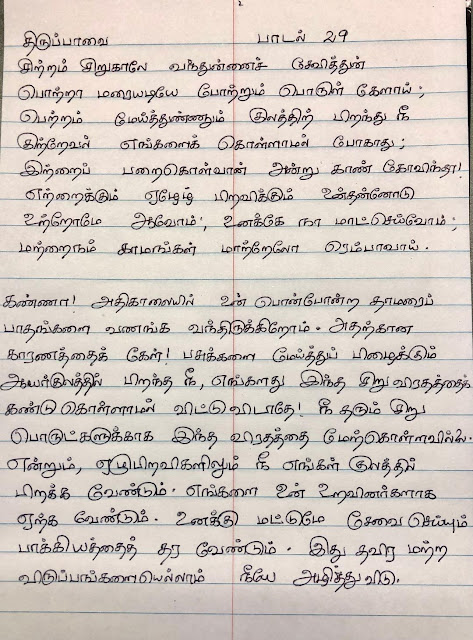 2
திருப்பாவை பாடல் 29
சிற்றம் சிறுகாலே வந்துன்னைச் சேவித்துன்
பொற்றா மரையடியே போற்றும் பொருள் கேளாய்;
பெற்றம் மேய்த்துண்ணும் குலத்திற் பிறந்து நீ
குற்றேவல் எங்களைக் கொள்ளாமல் போகாது;
இற்றைப் பறைகொள்வான் அன்று காண் கோவிந்தா!
எற்றைக்கும் ஏழேழ் பிறவிக்கும் உன்தன்னோடு
உற்றோமே ஆவோம்; உனக்கே நா மாட்செய்வோம்;
மற்றைநம் காமங்கள் மாற்றேலோ ரெம்பாவாய்.
கண்ணா! அதிகாலையில் உன் பொன்போன்ற தாமரைப்
பாதங்களை வணங்க வந்திருக்கிறோம். அதற்கான
காரணத்தைக் கேள்! பசுக்களை மேய்த்துப் பிழைக்கும்
ஆயர்குலத்தில் பிறந்த நீ, எங்களது இந்த சிறு விரதத்தைக்
கண்டு கொள்ளாமல் விட்டு விடாதே! நீ தரும் சிறு
பொருட்களுக்காக இந்த விரதத்தை மேற்கொள்ளவில்லை.
என்றும், ஏழுபிறவிகளிலும் நீ எங்கள் குலத்தில்
பிறக்க வேண்டும். எங்களை உன் உறவினர்களாக
ஏற்க வேண்டும். உனக்கு மட்டுமே சேவை செய்யும்
பாக்கியத்தைத் தர வேண்டும். இது தவிர மற்ற
விருப்பங்களையெல்லாம் நீயே அழித்து விடு.